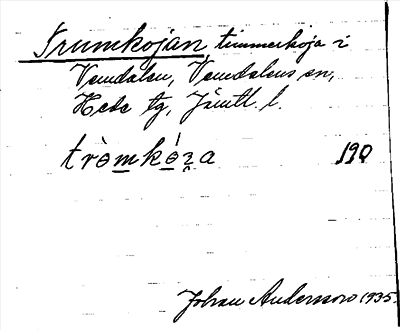 Trumkojan, timmerkoja i
Vemdalen, Vemdalens sn,
Hede tg, Jämtl. l.
tròmkóʒa 190
Johan Andersson 1935.